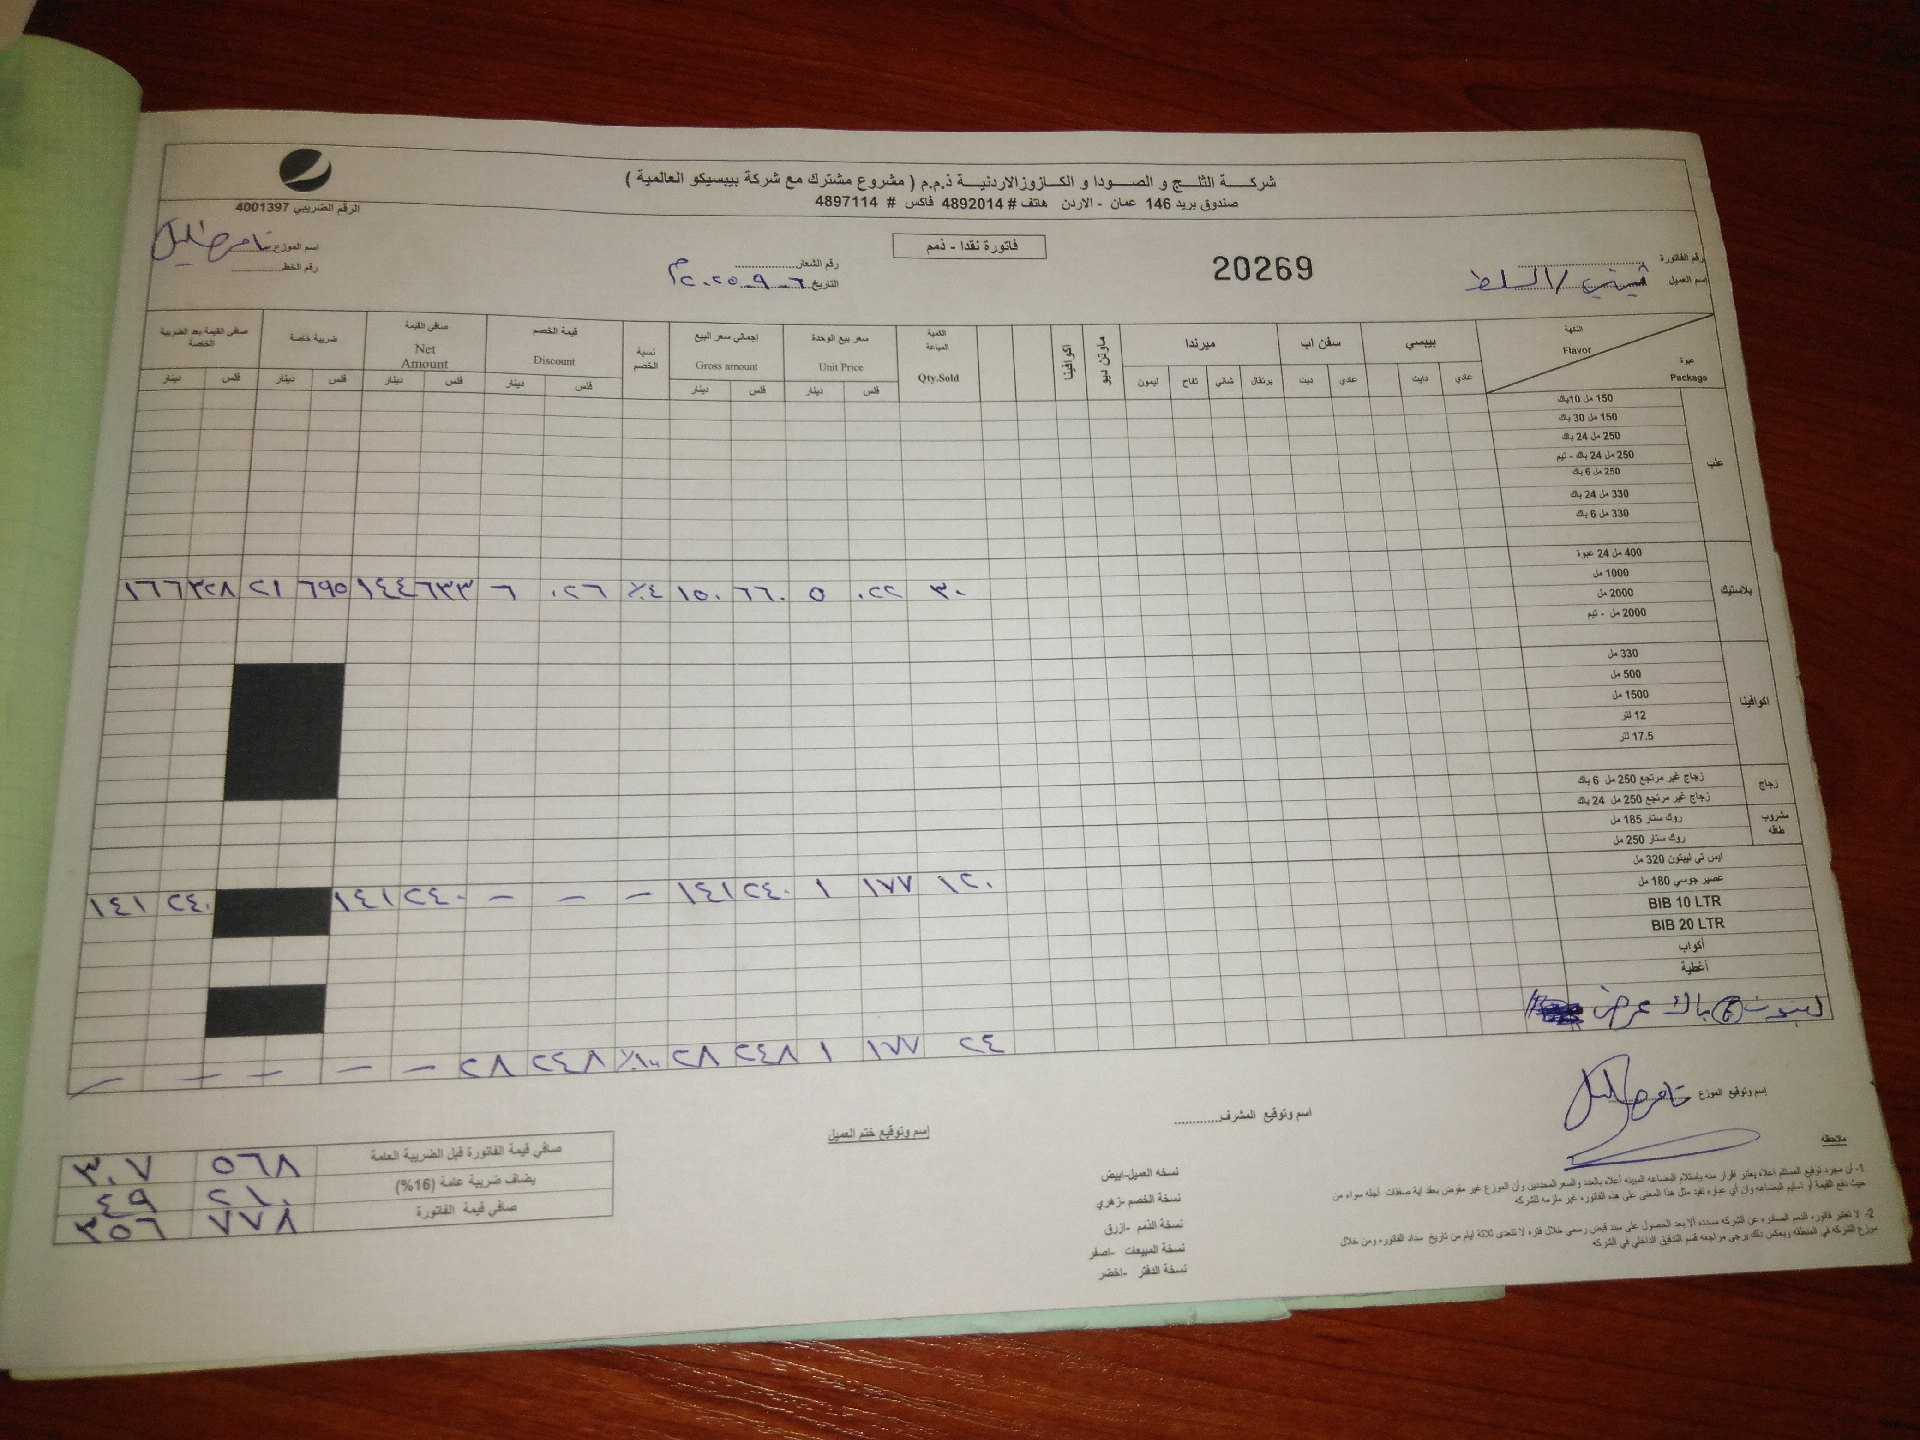 شركة الثلج و الصودا و الكازوز الاردنية ذ.م.م ( مشروع مشترك مع شركة بيبسيكو العالمية )
صندوق بريد 146 عمان - الاردن هاتف # 4892014 فاكس # 4897114
الرقم الضريبي 4001397
فاتورة نقدا - ذمم
رقم الفاتورة 20269
اسم العميل / السلط
رقم الشعار
التاريخ ٦-٩-٢٠٢٥م
اسم الموزع تامر خليل
رقم الخط
النكهة Flavor
عبوة Package
بيبسي سفن اب ميرندا ماونتن ديو اكوافينا
عادي دايت عادي ديت برتقال شاني تفاح ليمون
الكمية المباعة Qty.Sold
سعر بيع الوحدة Unit Price
إجمالي سعر البيع Gross amount
نسبة الخصم
قيمة الخصم Discount
صافي القيمة Net Amount
ضريبة خاصة
صافي القيمة بعد الضريبة الخاصة
فلس دينار فلس دينار فلس دينار فلس دينار فلس دينار فلس دينار
علب
150 مل 10باك
150 مل 30 باك
250 مل 24 باك
250 مل 24 باك - تيم
250 مل 6 باك
330 مل 24 باك
330 مل 6 باك
بلاستيك
400 مل 24 عبوة
1000 مل
2000 مل ٣٠ ٠٢٢ ٥ ٦٦٠ ١٥٠ ٤٪ ٠٢٦ ٦ ٦٣٣ ١٤٤ ٦٩٥ ٢١ ٣٢٨ ١٦٦
2000 مل - تيم
اكوافينا
330 مل
500 مل
1500 مل
12 لتر
17.5 لتر
زجاج
زجاج غير مرتجع 250 مل 6 باك
زجاج غير مرتجع 250 مل 24 باك
مشروب طاقه
روك ستار 185 مل
روك ستار 250 مل
ايس تي ليبتون 320 مل
عصير جوسي 180 مل ١٢٠ ١٧٧ ١ ٢٤٠ ١٤١ – – – ٢٤٠ ١٤١ ٢٤٠ ١٤١
BIB 10 LTR
BIB 20 LTR
أكواب
أغطية
ليبتون ٦ باك عرض ٢٤ ١٧٧ ١ ٢٤٨ ٢٨ ١٠٠٪ ٢٤٨ ٢٨ – – – – – –
إسم وتوقيع الموزع تامر خليل
اسم وتوقيع المشرف
إسم وتوقيع ختم العميل
صافي قيمة الفاتورة قبل الضريبة العامة ٥٦٨ ٣٠٧
يضاف ضريبة عامة (16%) ٢١٠ ٤٩
صافي قيمة الفاتورة ٧٧٨ ٣٥٦
نسخه العميل-ابيض
نسخة الخصم -زهري
نسخة الذمم -ازرق
نسخة المبيعات -اصفر
نسخة الدفتر -اخضر
ملاحظه
1- أن مجرد توقيع المستلم اعلاه يعتبر اقرار منه بإستلام البضاعه المبينه أعلاه بالعدد والسعر المحددين وأن الموزع غير مفوض بعقد اية صفقات آجله سواء من
حيث دفع القيمة أو تسليم البضاعه وان أي عباره تفيد مثل هذا المعنى على هذه الفاتوره غير ملزمه للشركه
2- لا تعتبر فاتوره الذمم الصادره عن الشركه مسدده ألا بعد الحصول على سند قبض رسمي خلال فتره لا تتعدى ثلاثة ايام من تاريخ سداد الفاتوره ومن خلال
موزع الشركه في المنطقه وبعكس ذلك يرجى مراجعه قسم التدقيق الداخلي في الشركه